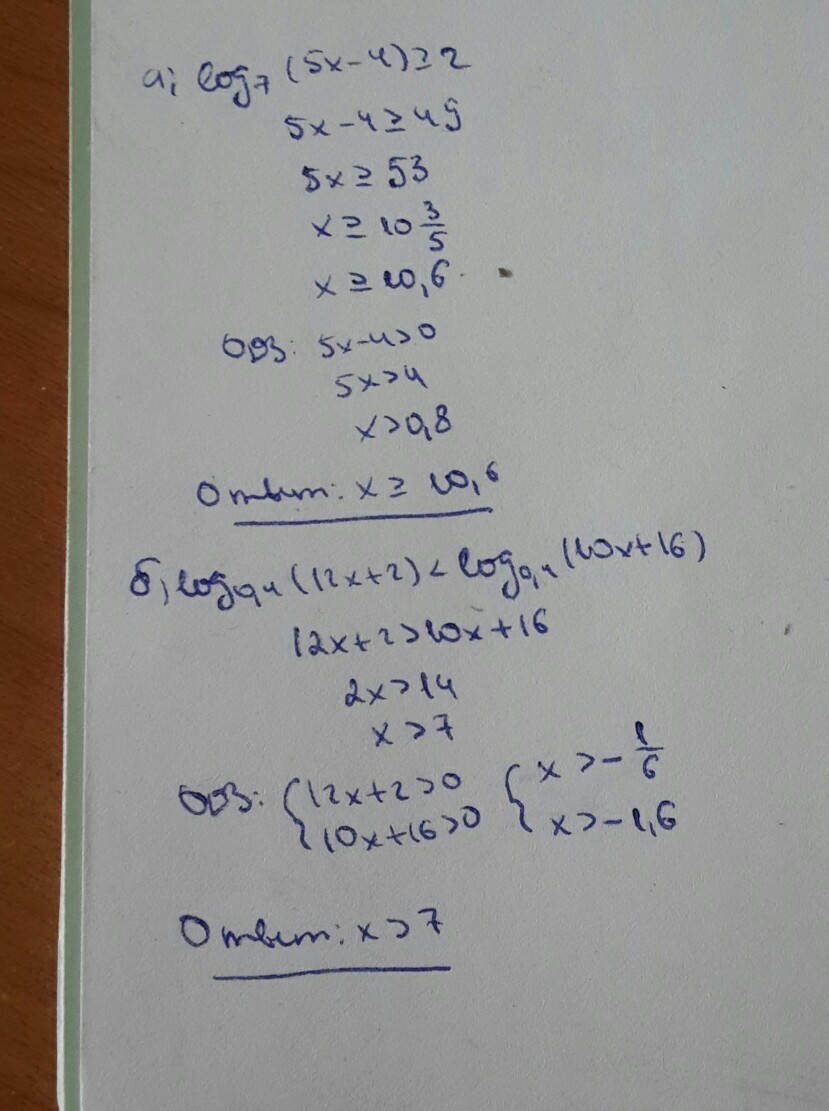 а) log₇ (5x-4) ≥ 2
5x-4 ≥ 49
5x ≥ 53
x ≥ 10 3/5
x ≥ 10,6
ОДЗ: 5x-4>0
5x>4
x>0,8
Ответ: x ≥ 10,6
б) log₀,₄ (12x+2) < log₀,₄ (10x+16)
12x+2>10x+16
2x>14
x>7
ОДЗ: { 12x+2>0 { x > - 1/6
10x+16>0 x>-1,6
Ответ: x>7